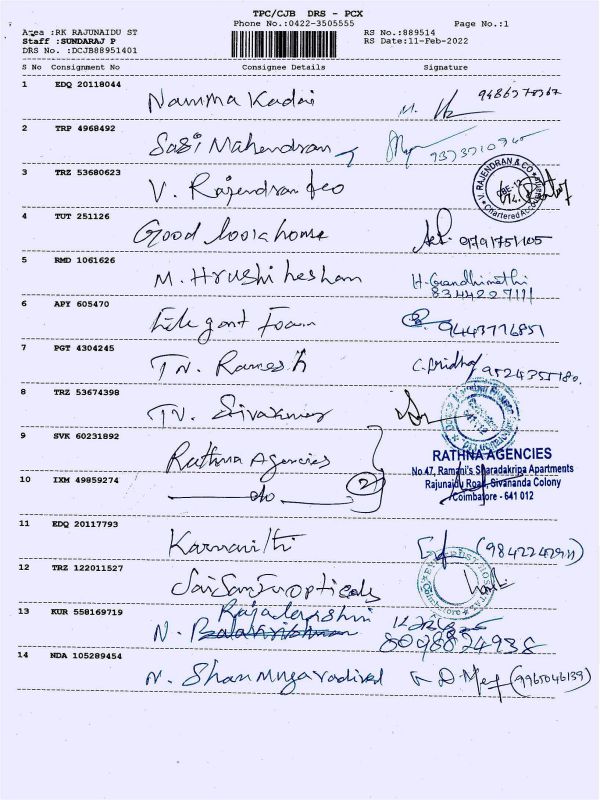 TPC/CJB DRS - PCX
Phone No.:0422-3505555 Page No.:1
Area :RK RAJUNAIDU ST RS No.:889514
Staff :SUNDARAJ P RS Date:11-Feb-2022
DRS No. :DCJB88951401
S No Consignment No Consignee Details Signature
1 EDQ 20118044
Namma Kadai
2 TRP 4968492
Sasi Mahendran
3 TRZ 53680623
V. Rajendran &co
V. RAJENDRAN & CO
Chartered Accountants
4 TUT 251126
Good book house 9791751105
5 RMD 1061626
M. Hrushikesham H. Gandhimathi
8344227111
6 APY 605470
Elegant Foam 9443776851
7 PGT 4304245
TN. Ramesh
8 TRZ 53674398
TN. Sivakumar
9 SVK 60231892
Rathna Agencies
RATHNA AGENCIES
No.47, Ramani's Sharadakripa Apartments
10 IXM 49859274
do 2
Rajunaidu Road, Sivananda Colony
Coimbatore - 641 012
11 EDQ 20117793
12 TRZ 122011527
Sai Sanju opticals
13 KUR 558169719
Rajalakshmi
N. Balakrishnan
8098824938
14 NDA 105289454
N. Shanmugavadivel (9965046139)